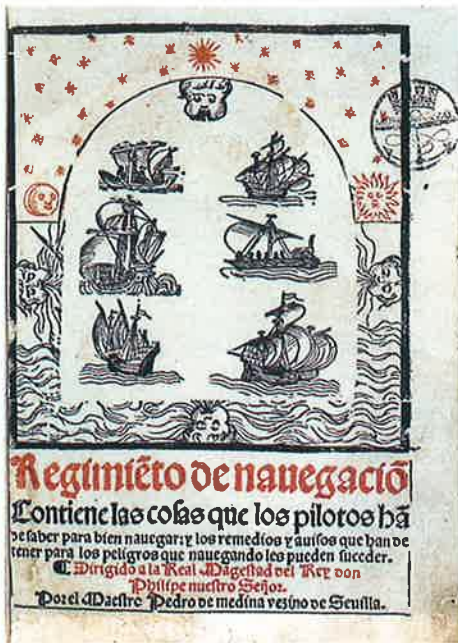 Regimiẽto de nauegaciõ
Contiene las cosas que los pilotos hã
de saber para bien nauegar: y los remedios y auisos que han de
tener para los peligros que nauegando les pueden suceder.
Dirigido a la Real Magestad del Rey don
Philipe nuestro Señor.
Por el Maestro Pedro de medina vezino de Seuilla.